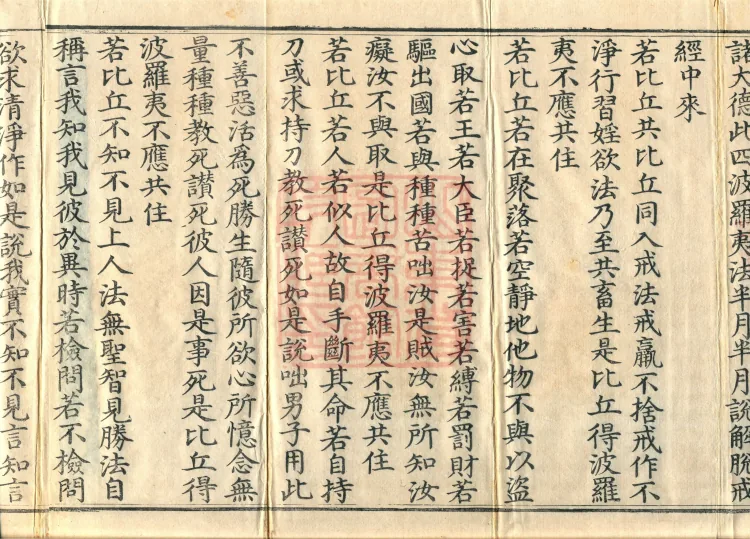 諸大德此四波羅夷法半月半月說解脫戒
經中來
若比丘共比丘同入戒法戒羸不捨戒作不
淨行習婬欲法乃至共畜生是比丘得波羅
夷不應共住
若比丘若在聚落若空靜地他物不與以盜
心取若王若大臣若捉若害若縛若罰財若
驅出國若與種種苦咄汝是賊汝無所知汝
癡汝不與取是比丘得波羅夷不應共住
若比丘若人若似人故自手斷其命若自持
刀或求持刀教死讃死如是說咄男子用此
不善惡活為死勝生隨彼所欲心所憶念無
量種種教死讃死彼人因是事死是比丘得
波羅夷不應共住
若比丘不知不見上人法無聖智見勝法自
稱言我知我見彼於異時若檢問若不檢問
欲求清淨作如是說我實不知不見言知言